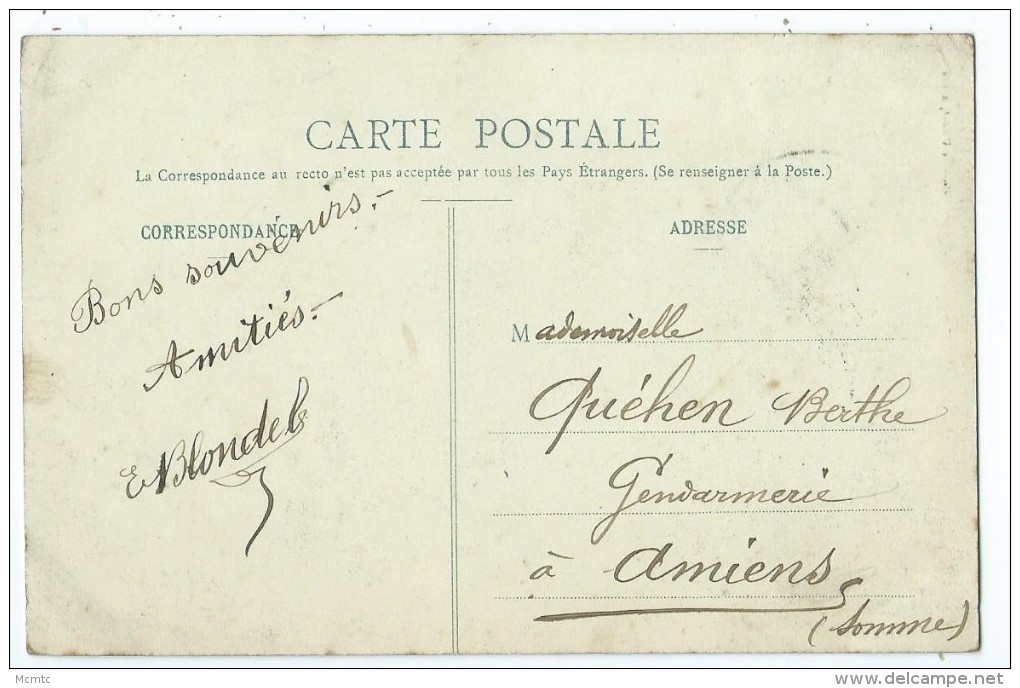 CARTE POSTALE
La Correspondance au recto n'est pas acceptée par tous les Pays Étrangers. (Se renseigner à la Poste.)
CORRESPONDANCE
Bons souvenirs.-
Amitiés.-
E Blondel
ADRESSE
Mademoiselle
Quéhen Berthe
Gendarmerie
à Amiens
(Somme)
Mcmtc
delcampe.net